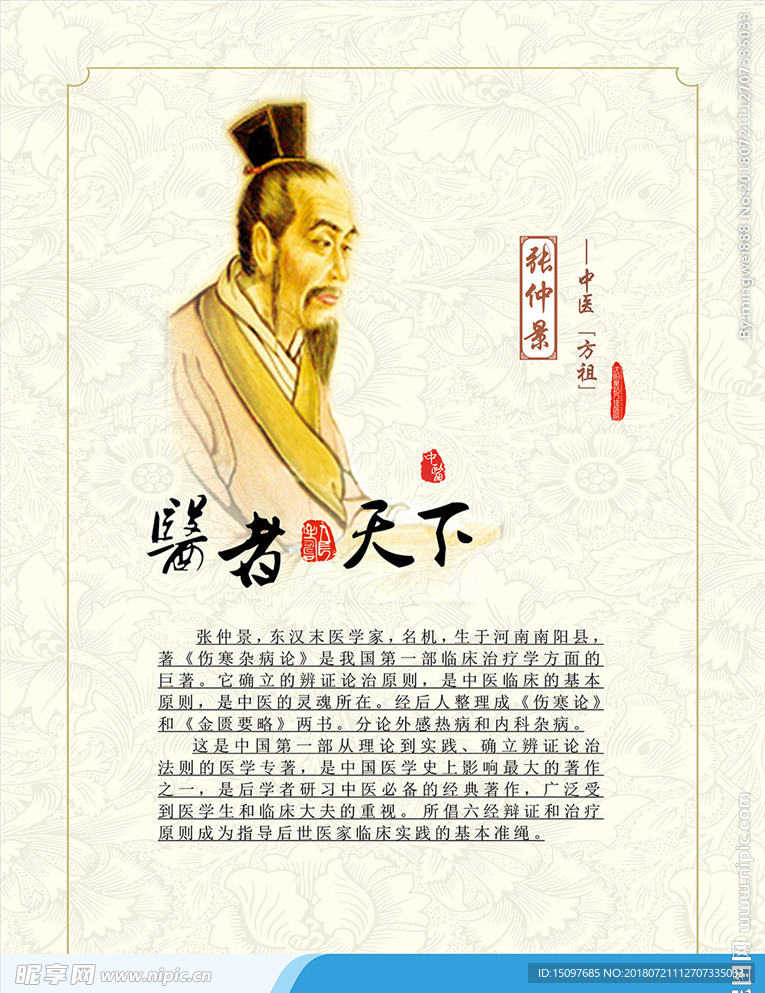 张仲景
—中医「方祖」
中醫
醫者天下
张仲景，东汉末医学家，名机，生于河南南阳县，
著《伤寒杂病论》是我国第一部临床治疗学方面的
巨著。它确立的辨证论治原则，是中医临床的基本
原则，是中医的灵魂所在。经后人整理成《伤寒论》
和《金匮要略》两书。分论外感热病和内科杂病。
这是中国第一部从理论到实践、确立辨证论治
法则的医学专著，是中国医学史上影响最大的著作
之一，是后学者研习中医必备的经典著作，广泛受
到医学生和临床大夫的重视。所倡六经辩证和治疗
原则成为指导后世医家临床实践的基本准绳。
By:mingwei888 No:20180721112707335033
www.nipic.com
昵享网 www.nipic.cn
ID:15097685 NO:20180721112707335033